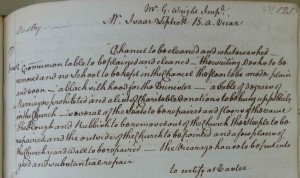 Mr. G. Wright Impr.
Mr. Isaac Liptrott B. a. Vicar
Chancel to be cleaned and whitewashed
Communion table to be repaired and cleaned – the writing Desks to be
removed and no School to be kept in the Chancel the floor to be made plain
and even – a black cloth hood for the Minister – a table of degrees of
Marriage prohibited and a list of Charitable Donations to be hung up publickly
in the Church – several of the Seats to be repaired and floors of the same
the Rough and Rubbish to be removed out of the Church the Steeple to be
repaired and the outside of the Church to be pointed and a few places of
the Church yard Wall to be repaired – the Vicarage house to be put into
good and substantial repair
to certify at Easter